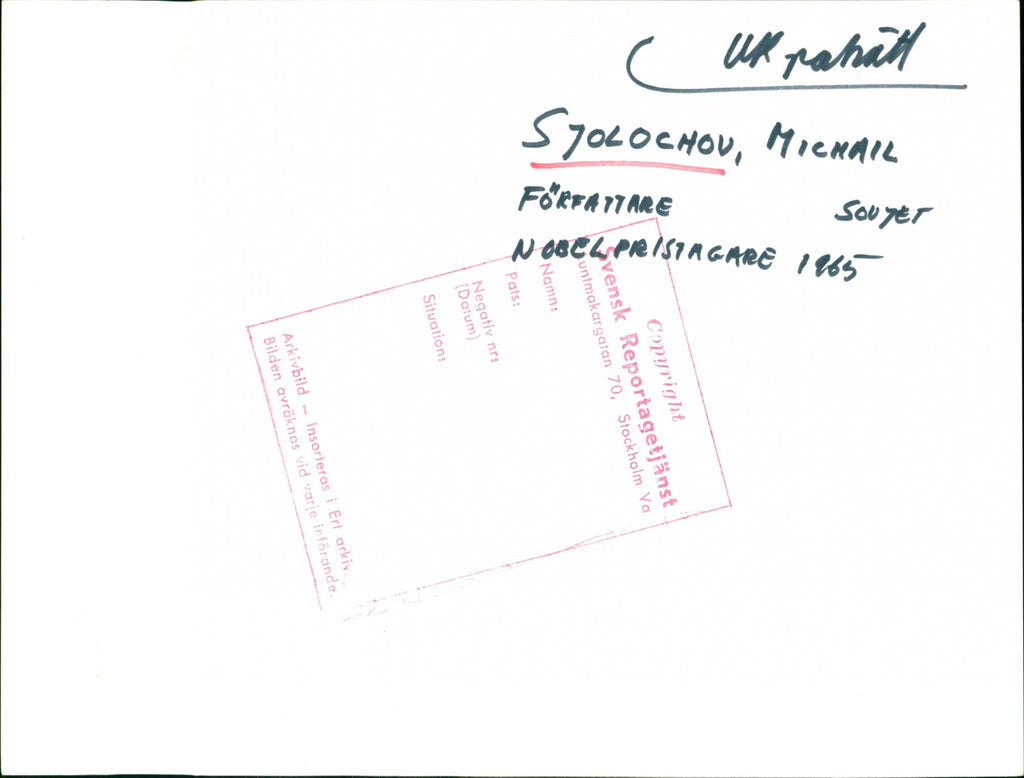 SJOLOCHOV, MICHAIL
FÖRFATTARE SOVJET
NOBELPRISTAGARE 1965
Copyright
Svensk Reportagetjänst
untmakargatan 70, Stockholm Va
Namn:
Pats:
Negativ nr:
(Datum)
Situation:
Arkivbild – Insorteras i Ert arkiv.
Bilden avräknas vid varje införande.